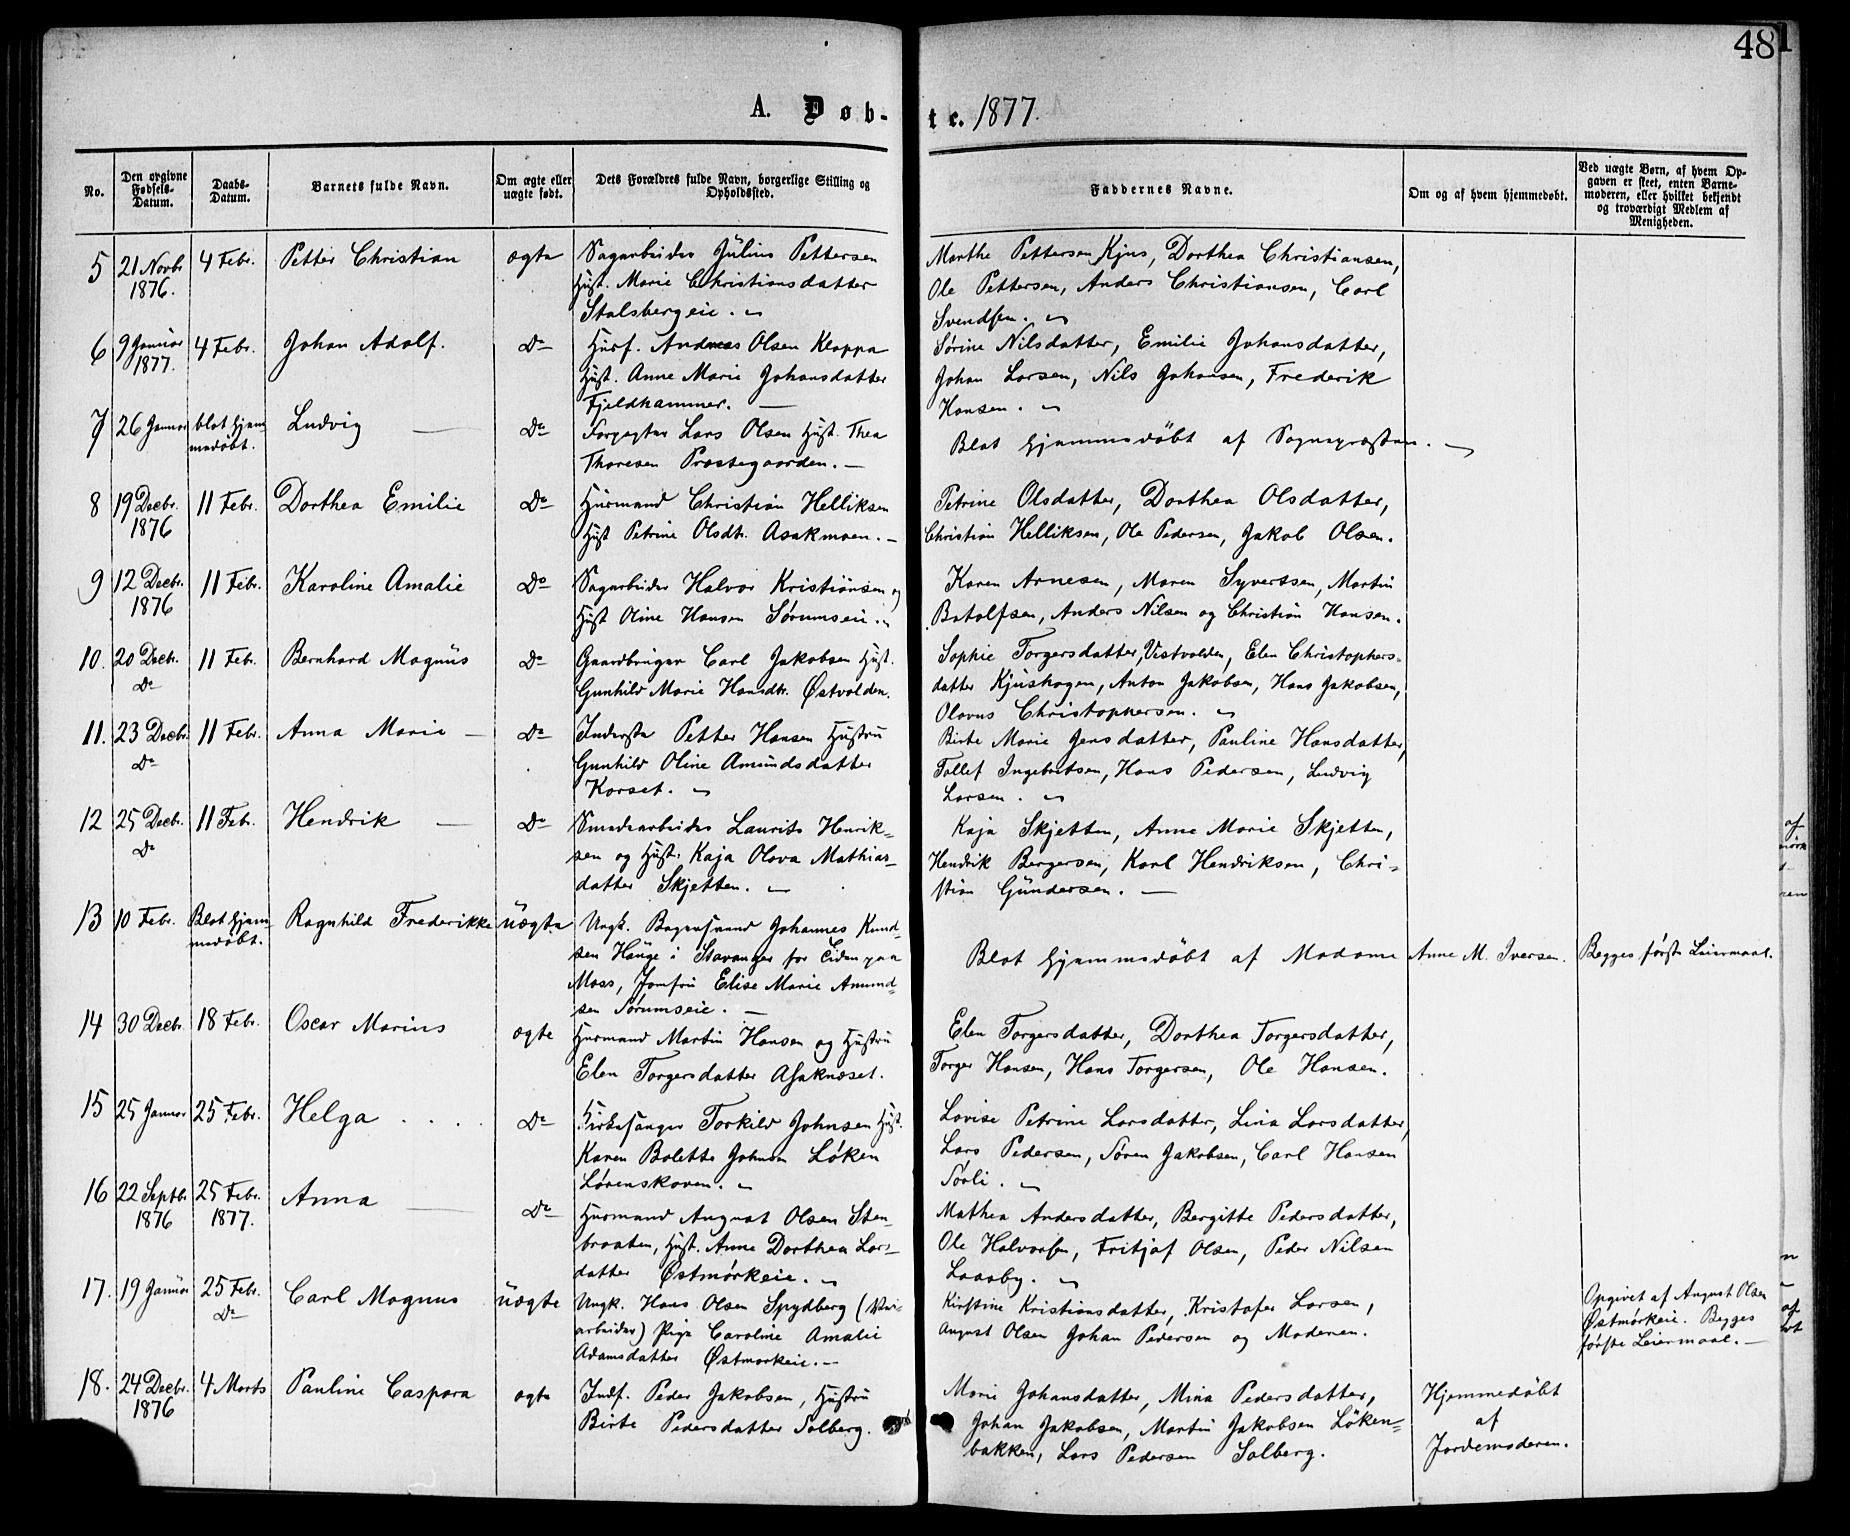 48
A. Døb-
te. 1877.
No.
Den opgivne Fødsels-Datum.
Daabs-Datum.
Barnets fulde Navn.
Om ægte eller uægte født.
Dets Forældres fulde Navn, borgerlige Stilling og Opholdssted.
Faddernes Navne.
Om og af hvem hjemmedøbt.
Ved uægte Børn, af hvem Op-
gaven er skeet, enten Barne-
moderen, eller hvilket bekjendt
og troværdigt Medlem af
Menigheden.
5 21 Novbr 4 Febr. Petter Christian ægte Sagarbeider Julius Pettersen Marthe Pettersen Kjus, Dorthea Christiansen,
1876. Hust. Marie Christiansdatter Ole Pettersen, Anders Christiansen, Carl
Stalsbergeie. Svendsen.
6 9 Januar 4 Febr. Johan Adolf. Do Husf. Andreas Olsen Kloppa Sørine Nilsdatter, Emilie Johansdatter,
1877. Hust. Anne Marie Johansdatter Johan Larsen, Nils Johansen, Frederik
Fjeldhammer. Hansen.
7 26 Januar blot hjem Ludvig Do Forpagter Lars Olsen Hust. Thea Blot hjemmedöbt af Sognepræsten.
medöbt. Thoresen Præstegaarden.
8 19 Decbr. 11 Febr. Dorthea Emilie Do Husmand Christian Helliksen Petrine Olsdatter, Dorthea Olsdatter,
1876 Hust Petrine Olsdtr. Asakmoen. Christian Helliksen, Ole Pedersen, Jakob Olsen.
9 12 Decbr. 11 Febr. Karoline Amalie Do Sagarbeider Halvor Kristiansen og Karen Arnesen, Maren Syverssen, Martin
1876 Hust Oline Hansen Sørumseie. Botolfsen, Anders Nilsen og Christian Hansen.
10. 20 Decb. 11 Feb. Bernhard Magnus Do Gaardbruger Carl Jakobsen Hust. Sophie Torgersdatter, Vestvolden, Elen Christophers-
Do Gunhild Marie Hansdtr. Østvolden. datter Kjushagen, Anton Jakobsen, Hans Jakobsen,
Olavus Christophersen.
11. 23 Decbr. 11 Febr. Anna Marie Do Inderste Petter Hansen Hustru Birte Marie Jensdatter, Pauline Hansdatter,
Do Gunhild Oline Amundsdatter Tollef Ingebretsen, Hans Pedersen, Ludvig
Korset. Larsen.
12 25 Decbr. 11 Febr. Hendrik Do Smedearbeider Laurits Henrik= Kaja Skjetten, Anne Marie Skjetten,
Do sen og Hust. Kaja Olava Mathias- Hendrik Bergersen, Karl Hendriksen, Chri-
datter Skjetten. stian Gundersen.
13 10 Febr. Blot hjem Ragnhild Frederikke uægte Ungk. Bagersvend Johannes Knud- Blot hjemmedöbt af Madame Anne M. Iversen. Begges første Leiermaal.
medöbt. sen Hauge i Stavanger for tiden paa
Moss, Jomfru Elise Marie Amund-
sen Sørumseie.
14 30 Decbr. 18 Febr. Oscar Marius ægte Husmand Martin Hansen og Hustru Elen Torgersdatter, Dorthea Torgersdatter,
Elen Torgersdatter Asaknæset. Torger Hansen, Hans Torgersen, Ole Hansen.
15 25 Januar 25 Febr. Helga Do Kirkesanger Torkild Johnsen Hust. Lovise Petrine Larsdatter, Lina Larsdatter,
Karen Bolette Johnsen Løken Lars Pedersen, Sören Jakobsen, Carl Hansen
Lørenskoven. Sörli.
16 22 Septbr 25 Febr. Anna Do Husmand August Olsen Sten- Mathea Andersdatter, Bergitte Pedersdatter,
1876 1877. braaten, Hust. Anne Dorthea Lars- Ole Halvorsen, Fritjof Olsen, Peder Nilsen
datter Østmørkeie. Laasby.
17. 19 Januar 25 Febr. Carl Magnus uægte Ungk. Hans Olsen Spydberg (Vei- Kirstine Kristiansdatter, Kristofer Larsen, Opgivet af August Olsen
Do arbeider) Pige Caroline Amalie August Olsen Johan Pedersen og Moderen. Østmørkeie. Begges
Adamsdatter Østmorkeie. første Leiermaal.
18. 24 Decbr. 4 Marts Pauline Caspara ægte Indf. Peder Jakobsen, Hustru Marie Johansdatter, Mina Pedersdatter, Hjemmedöbt
1876 Birte Pedersdatter Solberg. Johan Jakobsen, Martin Jakobsen Löken= af
bakken, Lars Pedersen Solberg. Jordemoderen.